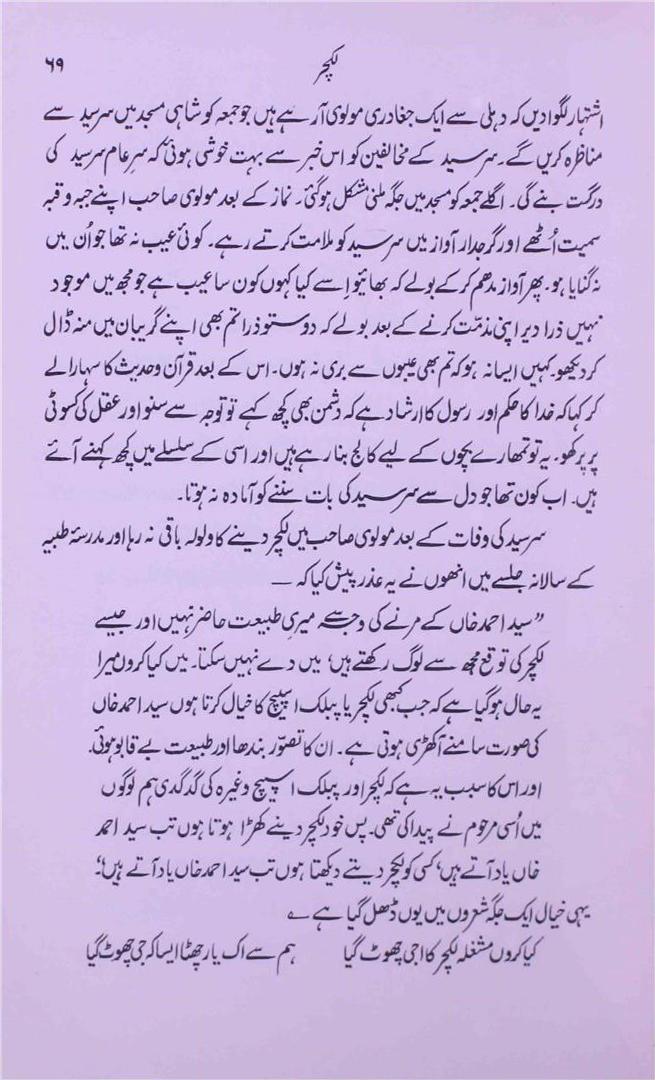 لکچر
۶۹
اشتہار لگوا دیں کہ دہلی سے ایک جغادری مولوی آ رہے ہیں جو جمعہ کو شاہی مسجد میں سرسید سے
مناظرہ کریں گے۔ سرسید کے مخالفین کو اس خبر سے بہت خوشی ہوئی کہ سرِ عام سرسید کی
درگت بنے گی۔ اگلے جمعہ کو مسجد میں جگہ ملنی مشکل ہو گئی۔ نماز کے بعد مولوی صاحب اپنے جبہ و قبہ
سمیت اُٹھے اور گرجدار آواز میں سرسید کو ملامت کرتے رہے۔ کوئی عیب نہ تھا جو اُن میں
نہ گنایا ہو۔ پھر آواز مدھم کر کے بولے کہ بھائیو اسے کیا کہوں کون سا عیب ہے جو مجھ میں موجود
نہیں ذرا دیر اپنی مذمّت کرنے کے بعد بولے کہ دوستو ذرا تم بھی اپنے گریبان میں منہ ڈال
کر دیکھو۔ کہیں ایسا نہ ہو کہ تم بھی عیبوں سے بری نہ ہوں۔ اس کے بعد قرآن و حدیث کا سہارا لے
کر کہا کہ خدا کا حکم اور رسول کا ارشاد ہے کہ دشمن بھی کچھ کہے تو توجہ سے سنو اور عقل کی کسوٹی
پر پرکھو۔ یہ تو تمھارے بچوں کے لیے کالج بنا رہے ہیں اور اسی کے سلسلے میں کچھ کہنے آئے
ہیں۔ اب کون تھا جو دل سے سرسید کی بات سننے کو آمادہ نہ ہوتا۔
سرسید کی وفات کے بعد مولوی صاحب میں لکچر دینے کا ولولہ باقی نہ رہا اور مدرسۂ طبیہ
کے سالانہ جلسے میں انھوں نے یہ عذر پیش کیا کہ —
”سید احمد خاں کے مرنے کی وجہ سے میری طبیعت حاضر نہیں اور جیسے
لکچر کی توقع مجھ سے لوگ رکھتے ہیں‘ میں دے نہیں سکتا۔ میں کیا کروں میرا
یہ حال ہو گیا ہے کہ جب کبھی لکچر یا پبلک اسپیچ کا خیال کرتا ہوں سید احمد خاں
کی صورت سامنے آ کھڑی ہوتی ہے۔ ان کا تصوّر بندھا اور طبیعت بے قابو ہوئی۔
اور اس کا سبب یہ ہے کہ لکچر اور پبلک اسپیچ وغیرہ کی گدگدی ہم لوگوں
میں اُسی مرحوم نے پیدا کی تھی۔ پس خود لکچر دینے کھڑا ہوتا ہوں تب سید احمد
خاں یاد آتے ہیں‘ کسی کو لکچر دیتے دیکھتا ہوں تب سید احمد خاں یاد آتے ہیں“۔
یہی خیال ایک جگہ شعروں میں یوں ڈھل گیا ہے ؎
کیا کروں مشغلہ لکچر کا اجی چھوٹ گیا ہم سے اک یار چھٹا ایسا کہ جی چھوٹ گیا